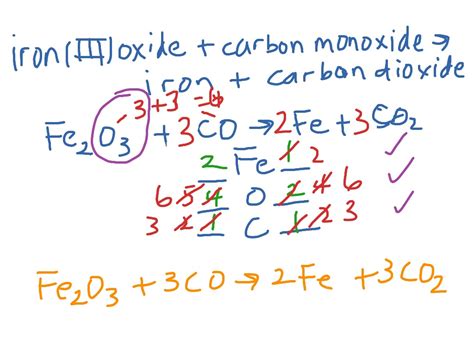 iron (III) oxide + carbon monoxide →
iron + carbon dioxide
3+3=6
Fe2O3 + 3CO → 2Fe + 3CO2
2 Fe 1 2
6 5 4 O 2 4 6
3 2 1 C 1 2 3
Fe2O3 + 3CO → 2Fe + 3CO2